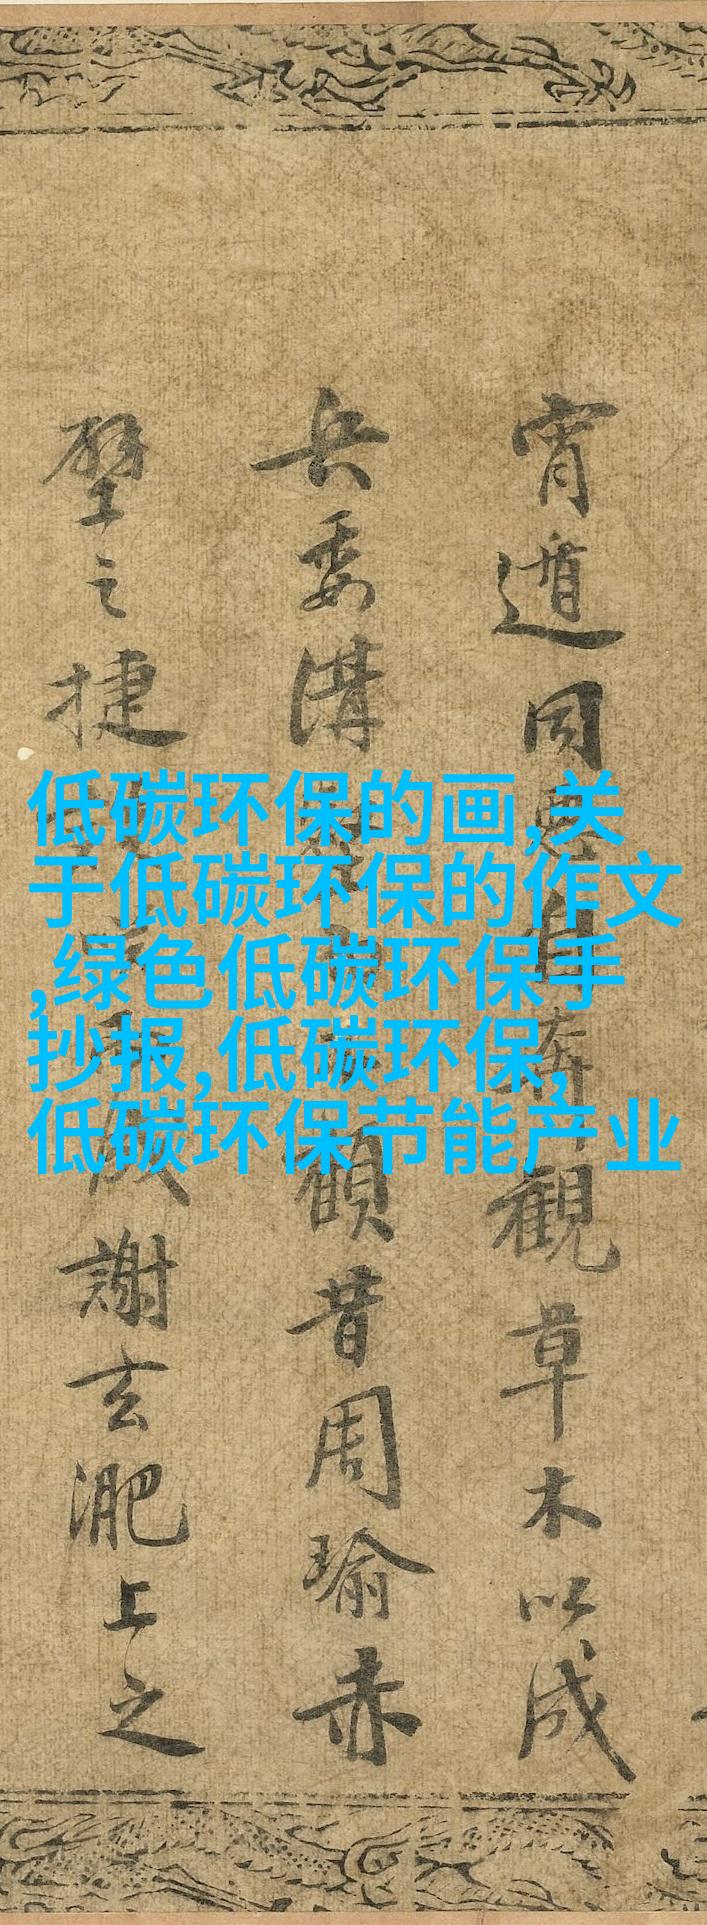 宵遁同惡自奔觀草木以成
兵委溝壑而不顧昔周瑜赤
壁之捷謝玄淝上之
低碳环保的画,关
于低碳环保的作文
,绿色低碳环保手
抄报,低碳环保,
低碳环保节能产业